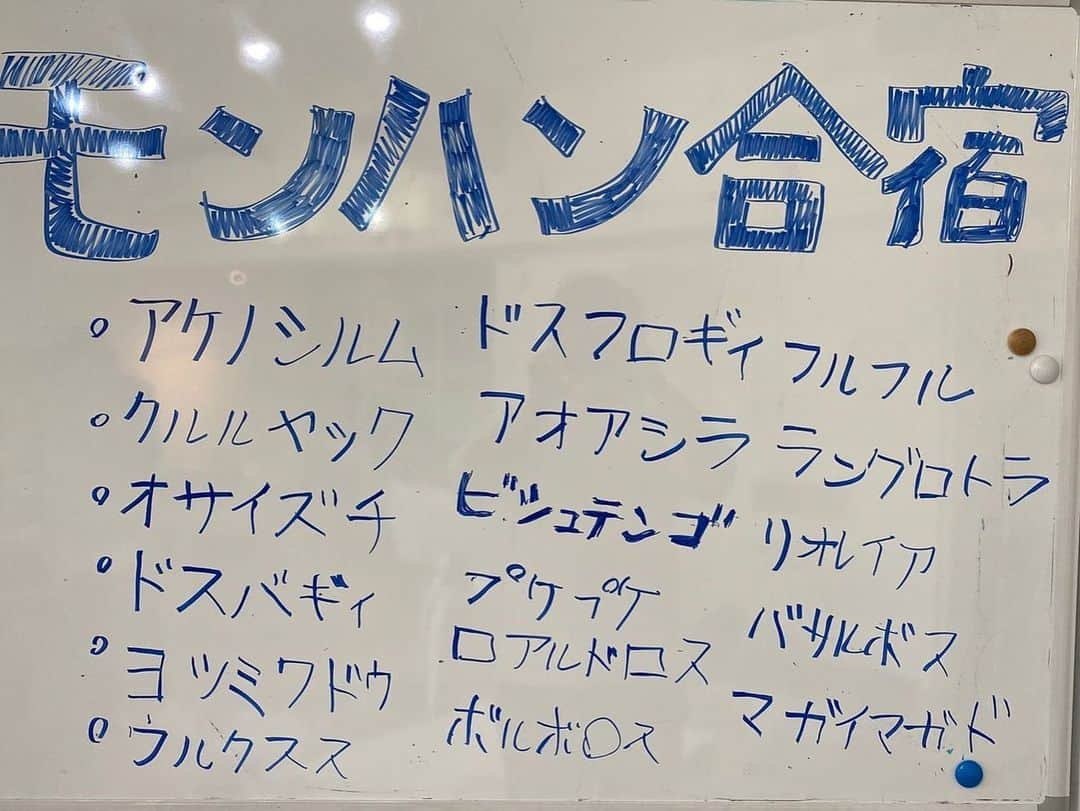 モンハン合宿
。アケノシルム
。クルルヤック
。オサイズチ
。ドスバギィ
。ヨツミワドウ
。ウルクスス
ドスフロギィ
アオアシラ
ビシュテンゴ
プケプケ
ロアルドロス
ボルボロス
フルフル
ラングロトラ
リオレイア
バサルボス
マガイマガド